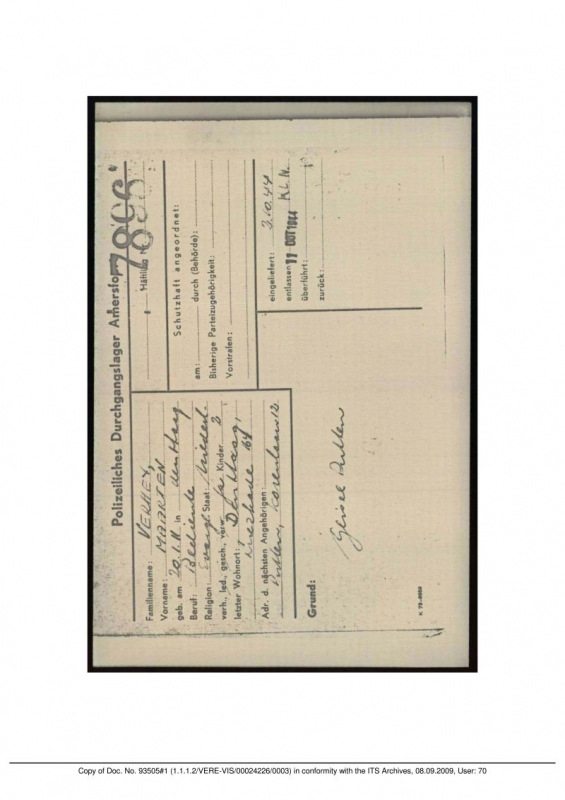 Polizeiliches Durchgangslager Amersfoort
Häftling Nr. 7896
Familienname: VERHEY,
Vorname: MAARTEN
geb. am 20.1.11 in den Haag
Beruf: Bediende
Religion: Evang. Staat:
verh., led., gesch., verw. ja Kinder 2
letzter Wohnort: Den Haag,
64
Adr. d. nächsten Angehörigen:
Putten, Rozenlaan 12
Schutzhaft angeordnet:
am: durch (Behörde):
Bisherige Parteizugehörigkeit:
Vorstrafen:
eingeliefert: 2.10.44
entlassen 11 OCT 1944 K.L.N.
überführt:
zurück:
Grund:
Geisel Putten
Copy of Doc. No. 93505#1 (1.1.1.2/VERE-VIS/00024226/0003) in conformity with the ITS Archives, 08.09.2009, User: 70